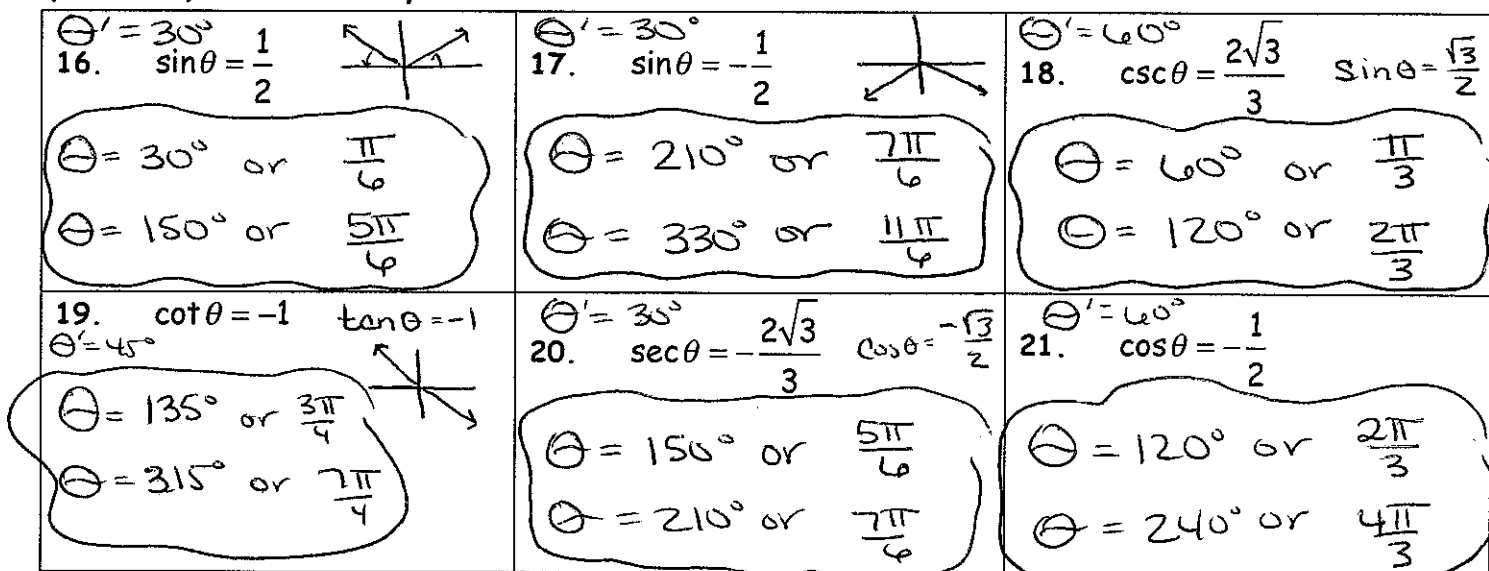 Θ' = 30°
16. sinθ = 1/2
Θ = 30° or π/6
Θ = 150° or 5π/6
Θ' = 30°
17. sinθ = -1/2
Θ = 210° or 7π/6
Θ = 330° or 11π/6
Θ' = 60°
18. cscθ = 2√3/3 Sinθ = √3/2
Θ = 60° or π/3
Θ = 120° or 2π/3
19. cotθ = -1 tanθ = -1
Θ' = 45°
Θ = 135° or 3π/4
Θ = 315° or 7π/4
Θ' = 30°
20. secθ = -2√3/3 Cosθ = -√3/2
Θ = 150° or 5π/6
Θ = 210° or 7π/6
Θ' = 60°
21. cosθ = -1/2
Θ = 120° or 2π/3
Θ = 240° or 4π/3